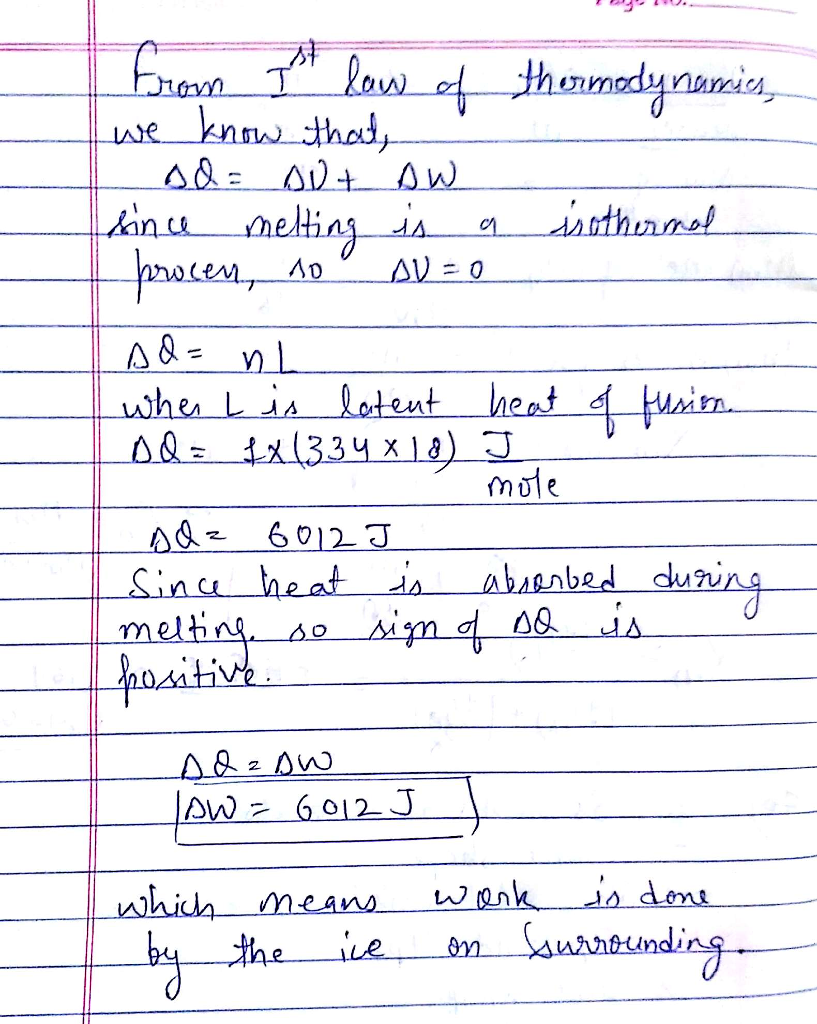 From Ist law of thermodynamics,
we know that,
ΔQ = ΔU + ΔW
since melting is a isothermal
process, so ΔU = 0
ΔQ = nL
wher L is latent heat of fusion.
ΔQ = 1x(334 x 18) J
mole
ΔQ = 6012 J
Since heat is absorbed during
melting. so sign of ΔQ is
positive.
ΔQ = ΔW
ΔW = 6012 J
which means work is done
by the ice on surrounding.